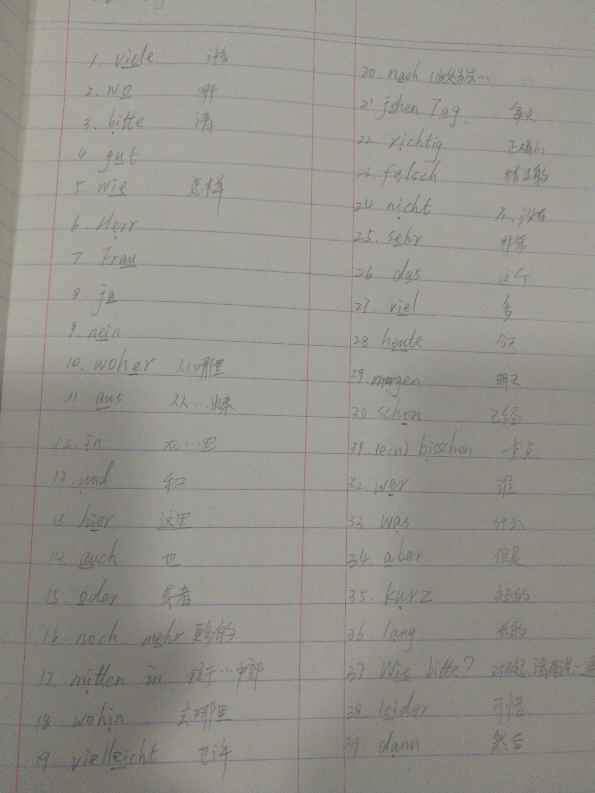 1. viele 许多
2. wo 哪
3. bitte 请
4. gut
5. wie 怎样
6. Herr
7. Frau
8. ja
9. nein
10. woher 从哪里
11. aus 从…出来
12. in 在…里
12. und 和
13. hier 这里
14. auch 也
15. oder 或者
16. noch mehr 更多的
17. mitten in 位于…中部
18. wohin 去哪里
19. vielleicht 也许
20. nach
21. jeden Tag 每天
22. richtig 正确的
23. falsch 错误的
24. nicht 不, 没有
25. sehr 非常
26. das 这个
27. viel 多
28. heute 今天
29. morgen 明天
30. schon 已经
31. (ein) bisschen 一点
32. wer 谁
33. was 什么
34. aber 但是
35. kurz 短的
36. lang 长的
37. Wie bitte?
38. leider 可惜
39. dann 然后